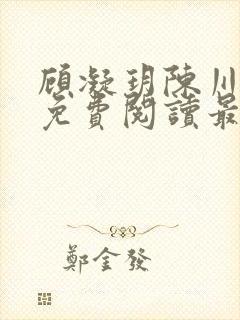 顾凝玥陳川
免費閱讀最
鄭金發